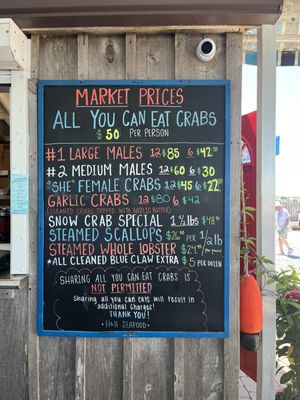 MARKET PRICES
ALL YOU CAN EAT CRABS
$50 PER PERSON
#1 LARGE MALES 12 $85 6 $42.50
#2 MEDIUM MALES 12 $60 6 $30
"SHE" FEMALE CRABS 12 $45 6 $22
GARLIC CRABS 12 $80 6 $42
(CLEANED CRABS TOPPED WITH GARLIC BUTTER)
SNOW CRAB SPECIAL 1 1/2 lbs $48
STEAMED SCALLOPS $26 PER 1/2 lb
STEAMED WHOLE LOBSTER $24 per pound
*ALL CLEANED BLUE CLAW EXTRA $5 PER DOZEN
SHARING ALL YOU CAN EAT CRABS IS
NOT PERMITTED
Sharing all you can eats will result in
additional charges!
THANK YOU!
-H&H SEAFOOD-